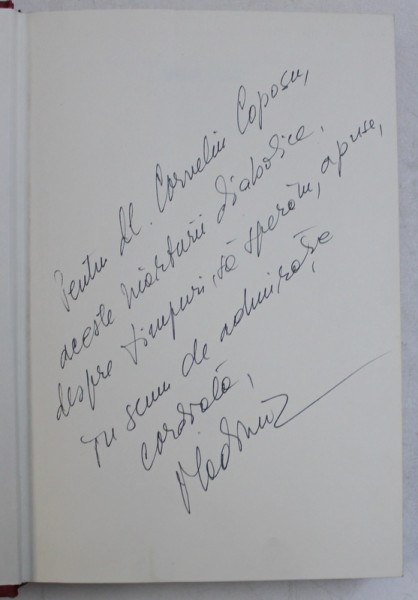 Pentru dl. Corneliu Coposu,
aceste mărturii diabolice,
despre timpuri, să sperăm, apuse,
cu semn de admirație
cordială,